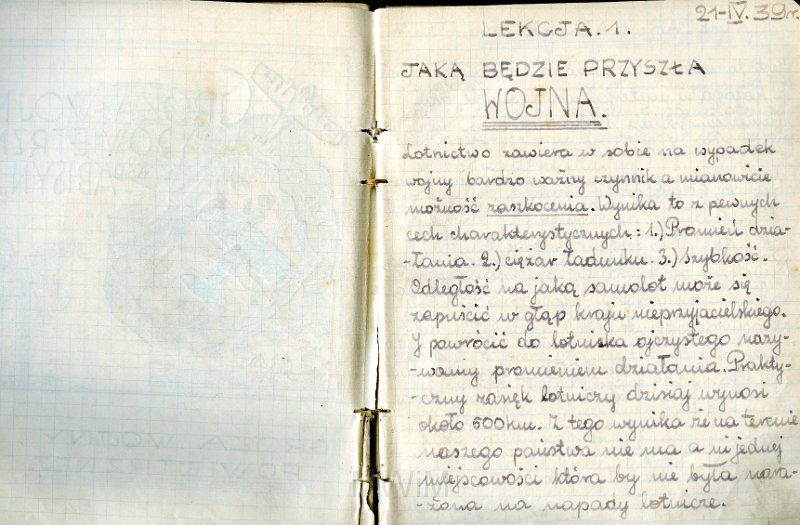 21-IV.39r.
LEKCJA.1.
JAKĄ BĘDZIE PRZYSZŁA
WOJNA.
Lotnictwo zawiera w sobie na wypadek
wojny bardzo ważny czynnik a mianowicie
możność zaskoczenia. Wynika to z pewnych
cech charakterystycznych: 1.) Promień dzia-
-łania. 2.) ciężar ładunku. 3.) Szybkość.
Odległość na jaką samolot może się
zapuścić w głąp kraju nieprzyjacielskiego.
J powrócić do lotniska ojczystego nazy-
wamy promieniem działania. Prakty-
czny zasięk lotniczy dzisiaj wynosi
około 600 km. Z tego wynika że na terenie
naszego państwa nie ma a ni jednej
miejscowości która by nie była nara-
-żona na napady lotnicze.